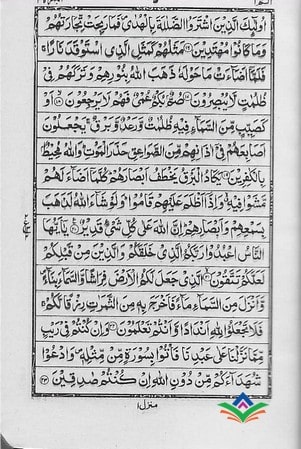 اُولٰٓئِكَ الَّذِيْنَ اشْتَرَوُا الضَّلٰلَةَ بِالْهُدٰى فَمَا رَبِحَتْ تِّجَارَتُهُمْ
وَمَا كَانُوْا مُهْتَدِيْنَ ﴿۱۶﴾ مَثَلُهُمْ كَمَثَلِ الَّذِى اسْتَوْقَدَ نَارًا
فَلَمَّآ اَضَآءَتْ مَا حَوْلَهٗ ذَهَبَ اللّٰهُ بِنُوْرِهِمْ وَتَرَكَهُمْ فِىْ
ظُلُمٰتٍ لَّا يُبْصِرُوْنَ ﴿۱۷﴾ صُمٌّۢ بُكْمٌ عُمْىٌ فَهُمْ لَا يَرْجِعُوْنَ ﴿۱۸﴾ اَوْ
كَصَيِّبٍ مِّنَ السَّمَآءِ فِيْهِ ظُلُمٰتٌ وَّرَعْدٌ وَّبَرْقٌ يَجْعَلُوْنَ
اَصَابِعَهُمْ فِىْٓ اٰذَانِهِمْ مِّنَ الصَّوَاعِقِ حَذَرَ الْمَوْتِ وَاللّٰهُ مُحِيْطٌۢ
بِالْكٰفِرِيْنَ ﴿۱۹﴾ يَكَادُ الْبَرْقُ يَخْطَفُ اَبْصَارَهُمْ كُلَّمَآ اَضَآءَ لَهُمْ
مَّشَوْا فِيْهِ وَاِذَآ اَظْلَمَ عَلَيْهِمْ قَامُوْا وَلَوْ شَآءَ اللّٰهُ لَذَهَبَ
بِسَمْعِهِمْ وَاَبْصَارِهِمْ اِنَّ اللّٰهَ عَلٰى كُلِّ شَىْءٍ قَدِيْرٌ ﴿۲۰﴾ يٰٓاَيُّهَا
النَّاسُ اعْبُدُوْا رَبَّكُمُ الَّذِىْ خَلَقَكُمْ وَالَّذِيْنَ مِنْ قَبْلِكُمْ
لَعَلَّكُمْ تَتَّقُوْنَ ﴿۲۱﴾ الَّذِىْ جَعَلَ لَكُمُ الْاَرْضَ فِرَاشًا وَّالسَّمَآءَ بِنَآءً
وَّاَنْزَلَ مِنَ السَّمَآءِ مَآءً فَاَخْرَجَ بِهٖ مِنَ الثَّمَرٰتِ رِزْقًا لَّكُمْ
فَلَا تَجْعَلُوْا لِلّٰهِ اَنْدَادًا وَّاَنْتُمْ تَعْلَمُوْنَ ﴿۲۲﴾ وَاِنْ كُنْتُمْ فِىْ رَيْبٍ
مِّمَّا نَزَّلْنَا عَلٰى عَبْدِنَا فَاْتُوْا بِسُوْرَةٍ مِّنْ مِّثْلِهٖ وَادْعُوْا
شُهَدَآءَكُمْ مِّنْ دُوْنِ اللّٰهِ اِنْ كُنْتُمْ صٰدِقِيْنَ ﴿۲۳﴾
منزل۱